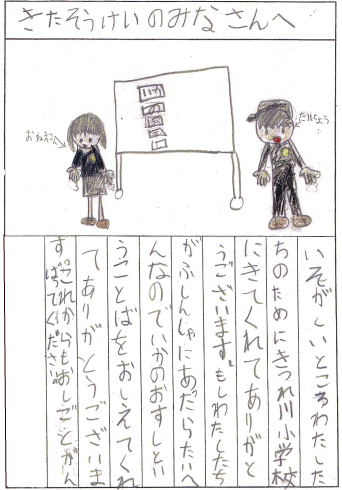 きたそうけいのみなさんへ
いか
の
お
す
し
おねえさん
いそがしいところわたした
ちのためにきつれ川小学校
にきてくれてありがと
うございます。もしわたしたち
がふしんしゃにあだらたいへ
んなのでいかのおすしとい
うことばをおしえてくれ
てありがとうございま
す。これからもおしごとがん
ばってください。